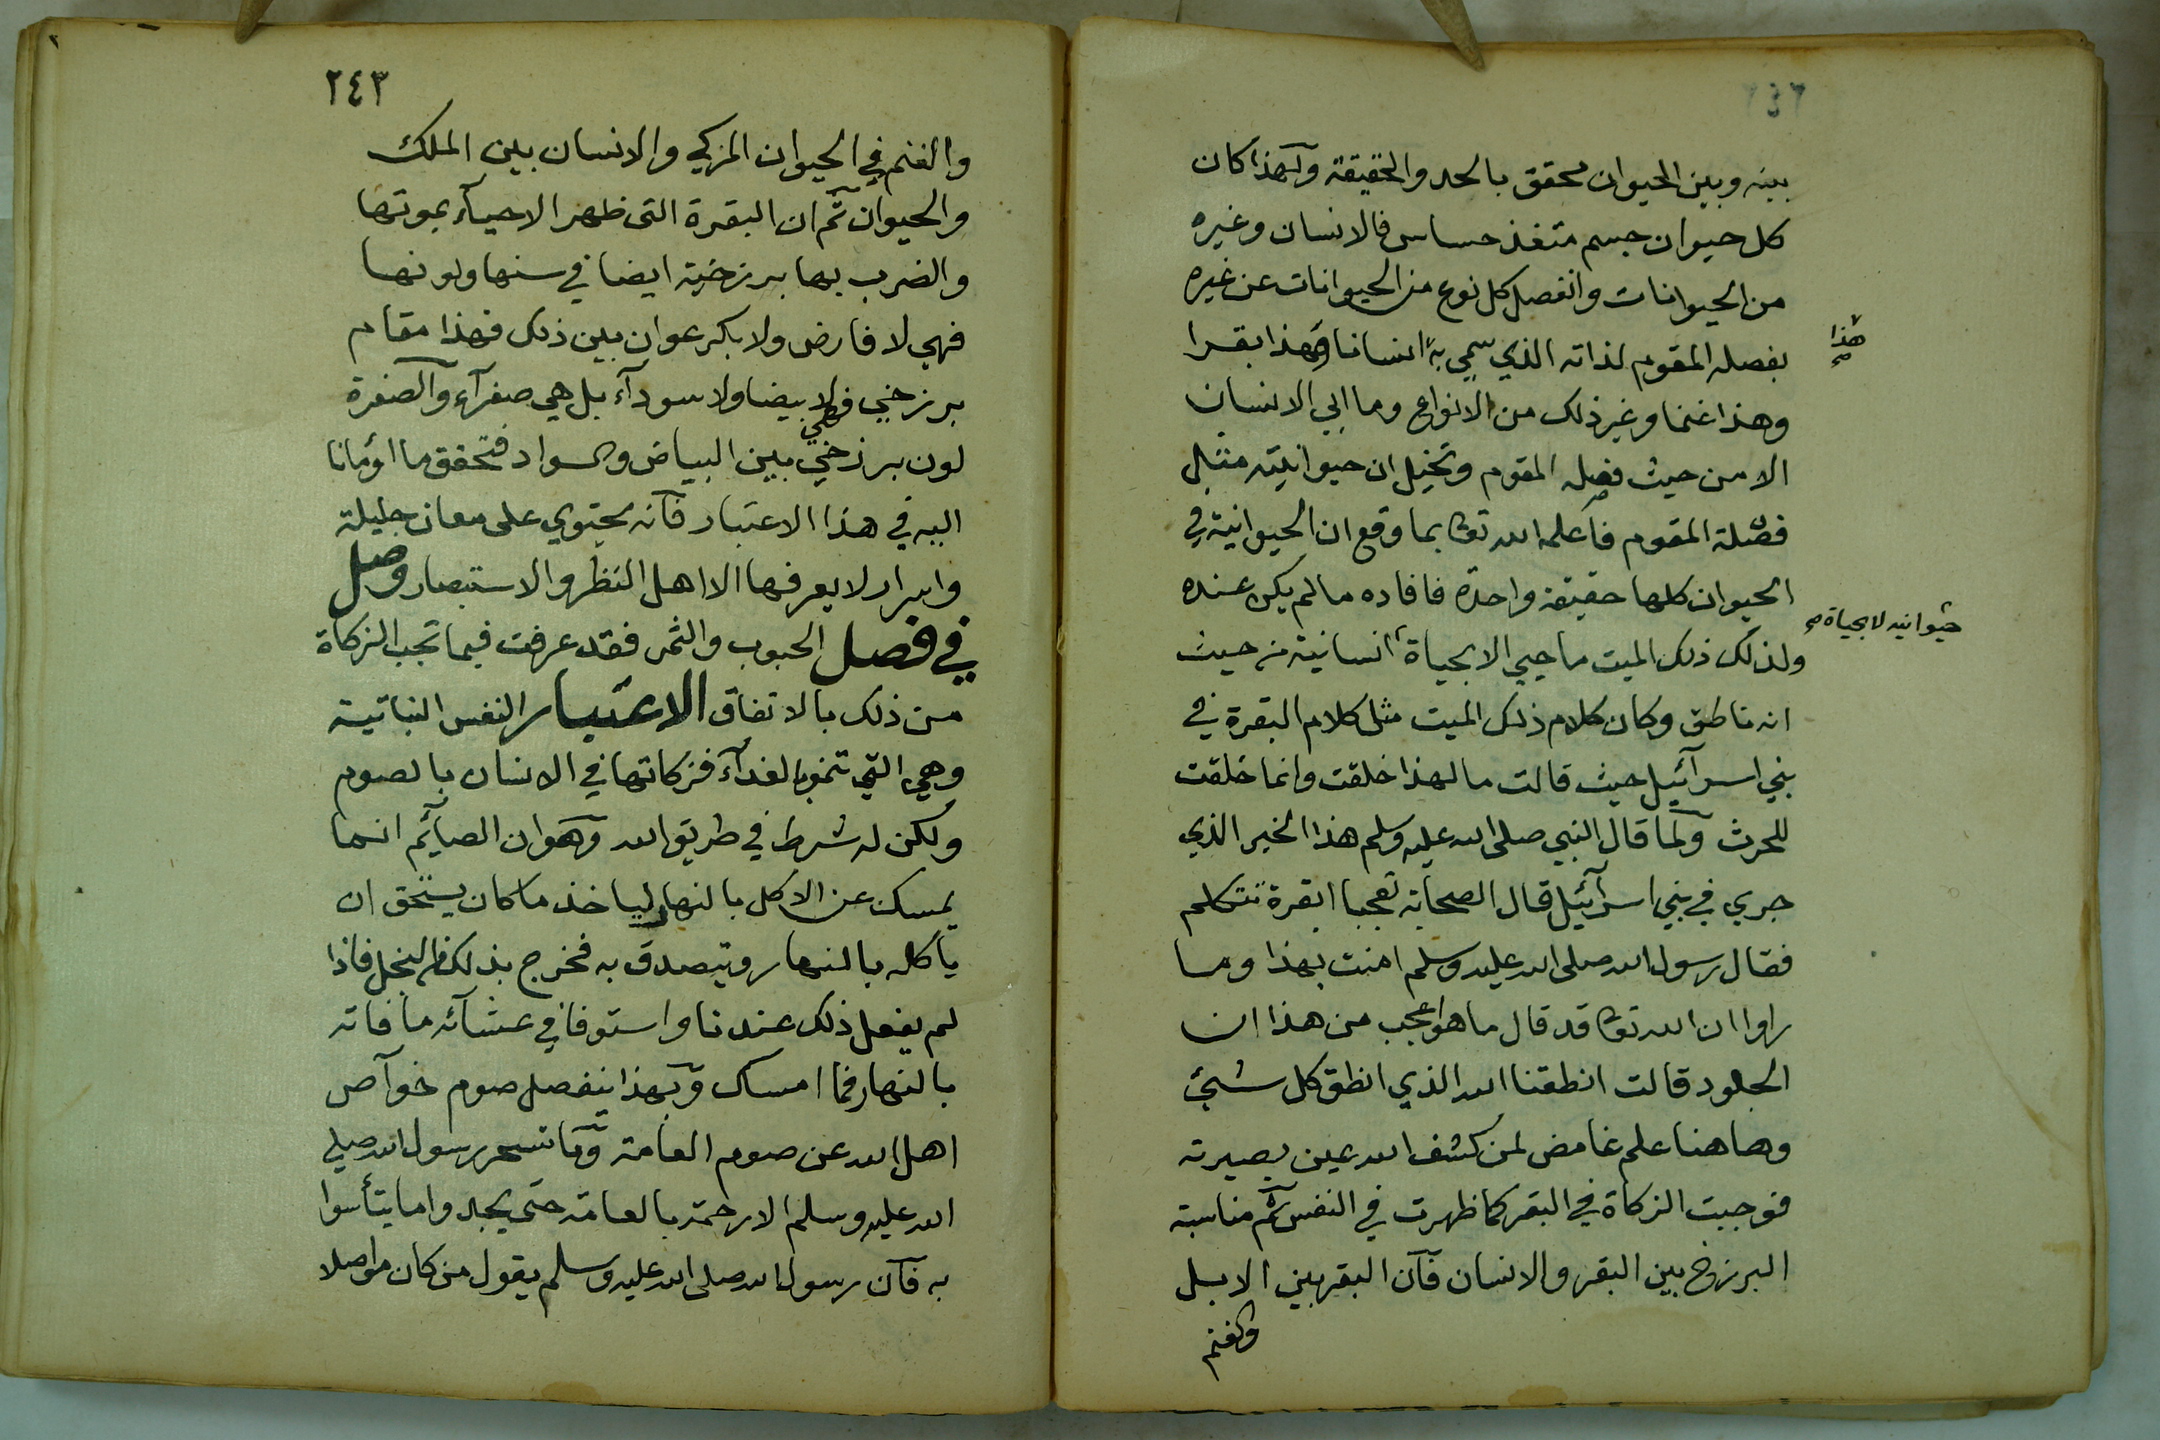 بينه وبين الحيوان محقق بالحد والحقيقة ولهذا كان
كل حيوان جسم متغذ حساس فالانسان وغيره
من الحيوانات وانفصل كل نوع من الحيوانات عن غيره
بفصله المقوم لذاته الذي سمي به هذا انسانا وهذا بقرا
وهذا غنما وغير ذلك من الانواع وما ابي الانسان
الا من حيث فصله المقوم وتخيل ان حيوانيته مثل
فصله المقوم فاعلمه الله تعا بما وقع ان الحيوانية في
الحيوان كلها حقيقة واحدة فافاده ما لم يكن عنده
ولذلك ذلك الميت ما حيي الا بحياة حيوانيه لا بحياة انسانية من حيث
انه ناطق وكان كلام ذلك الميت مثل كلام البقرة في
بني اسرآئيل حيث قالت ما لهذا خلقت وانما خلقت
للحرث ولما قال النبي صلى الله عليه وسلم هذا الخبر الذي
جري في بني اسرآئيل قال الصحابه تعجبا ابقرة تتكلم
فقال رسول الله صلى الله عليه وسلم امنت بهذا وما
راوا ان الله تعا قد قال ما هو اعجب من هذا ان
الجلود قالت انطقنا الله الذي انطق كل شيئ
وهاهنا علم غامض لمن كشف الله عين بصيرته
فوجبت الزكاة في البقر كما ظهرت في النفس ثم مناسبة
البرزخ بين البقر والانسان فان البقر بين الابل
والغنم
٢٤٣
والغنم في الحيوان المزكي والانسان بين الملك
والحيوان ثم ان البقرة التي ظهر الاحيآء بموتها
والضرب بها برزخية ايضا في سنها ولونها
فهي لا فارض ولا بكر عوان بين ذلك فهذا مقام
برزخي فهي لا بيضا ولا سودآء بل هي صفرآء والصفرة
لون برزخي بين البياض والسواد فتحقق ما اومانا
اليه في هذا الاعتبار فانه يحتوي على معان جليلة
واسرار لا يعرفها الا اهل النظر والاستبصار وصل
في فصل الحبوب والثمر فقد عرفت فيما تجب الزكاة
من ذلك بالاتفاق الاعتبار النفس النباتية
وهي التي تنمو بالغدآء فزكاتها في الانسان بالصوم
ولكن له شرط في طريق الله وهو ان الصايم انما
يمسك عن الاكل بالنهار لياخذ ما كان يستحق ان
ياكله بالنهار ويتصدق به فخرج بذلك من البخل فاذا
لم يفعل ذلك عندنا واستوفا في عشآئه ما فاته
بالنهار فما امسك وبهذا ينفصل صوم خوآص
اهل الله عن صوم العامة وما تسحر رسول الله صلى
الله عليه وسلم الا رحمة بالعامة حتى يجد واما يتأسوا
به فان رسول الله صلى الله عليه وسلم يقول من كان مواصلا